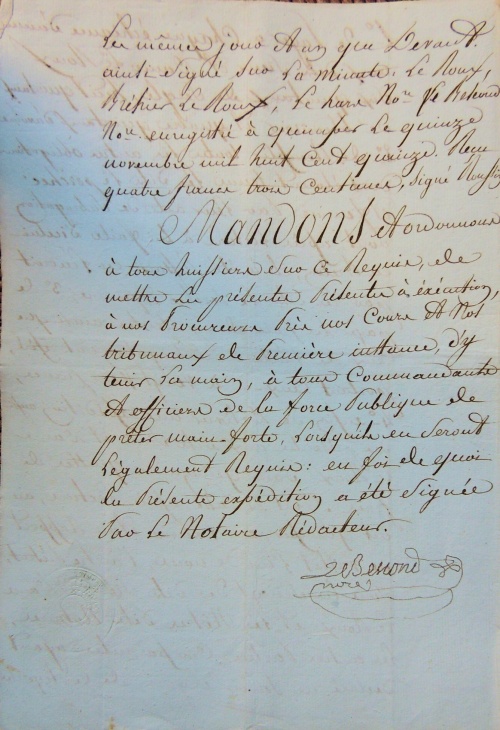 Les mêmes jour et an que Devant.
ainsi Signé Sur La minute: Le Roux,
Le Roux, Le hars No.re Le Bescond
No.re enregistré à quimper Le quinze
novembre mil huit Cent quinze. Reçu
quatre francs trois Centimes, signé
MANDONS Et ordonnons
à tous huissiers Sur Ce Requis, de
mettre Les présentes à éxécution,
à nos Procureurs Près nos Cours Et Nos
tribunaux de Première instance, d'y
tenir La main, à tous Commandants
Et officiers de la force Publique de
prêter main-forte, Lorsqu'ils en Seront
Légalement Requis: en foi de quoi
la Présente expédition a été Signée
Par Le Notaire Rédacteur.
LeBescond
no.re